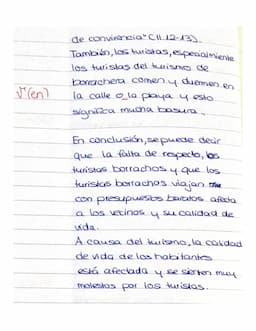 de convivencia" (ll. 12-13).
También, los turistas, especialmente
los turistas del turismo de
borrachera comen y duermen en
la calle o la playa y esto
significa mucha basura.
√(en)
En conclusión, se puede decir
que la falta de respeto, los
turistas borrachos y que los
turistas borrachos viajan
con presupuestos baratos afecta
a los vecinos y su calidad de
vida.
A causa del turismo, la calidad
de vida de los habitantes
está afectada y se sienten muy
molestos por los turistas.